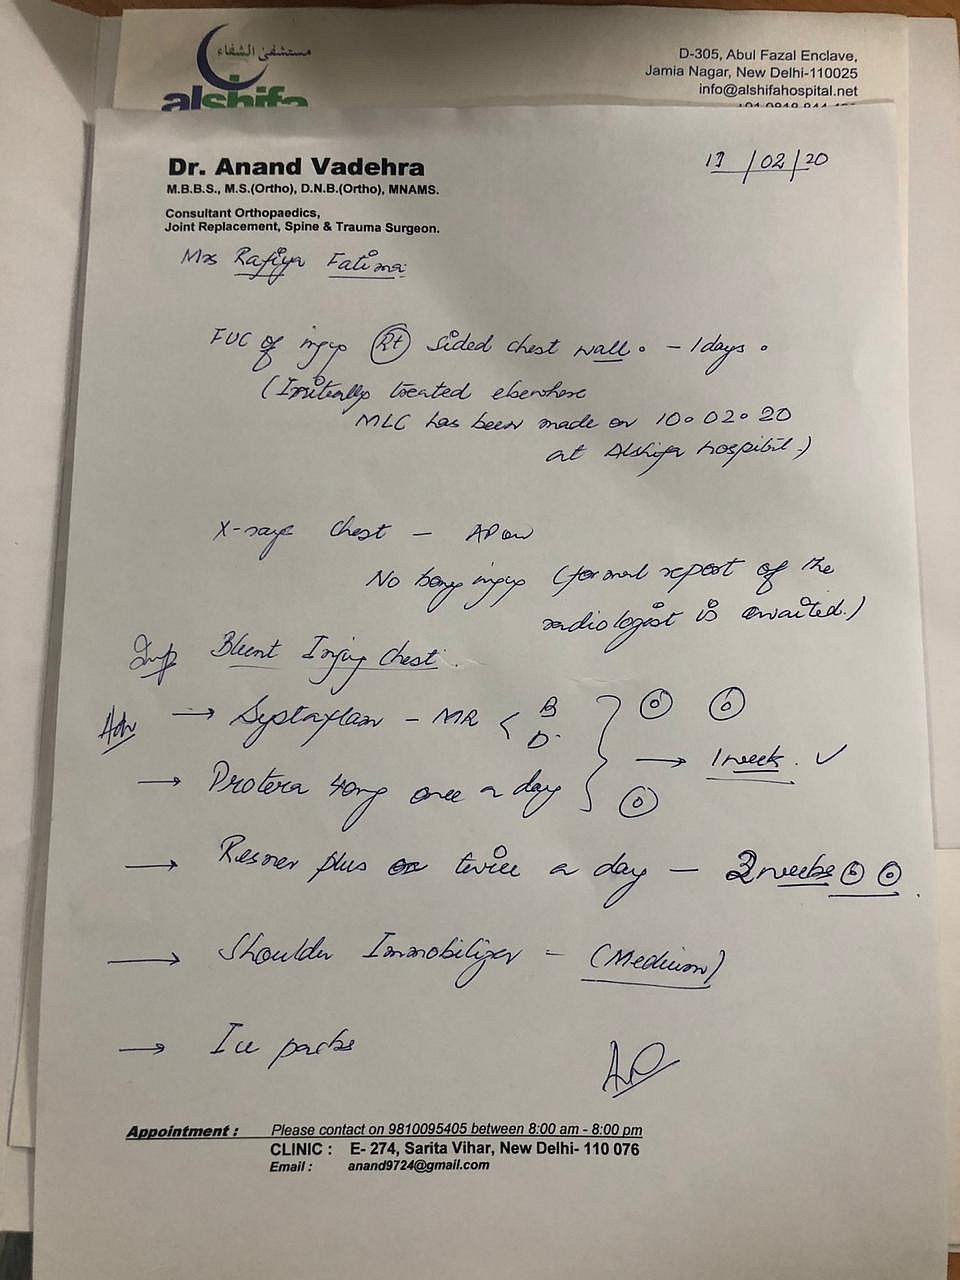 مستشفى الشفاء
alshifa
D-305, Abul Fazal Enclave,
Jamia Nagar, New Delhi-110025
info@alshifahospital.net
Dr. Anand Vadehra
M.B.B.S., M.S.(Ortho), D.N.B.(Ortho), MNAMS.
Consultant Orthopaedics,
Joint Replacement, Spine & Trauma Surgeon.
/02/20
Mrs Rafiya Fatima
FUC of injury Rt sided chest wall. - 1 days.
(Initially treated elsewhere
MLC has been made on 10.02.20
at Alshifa hospital.)
X-rays chest -
No bony injury (formal report of the
radiologist is awaited.)
Imp Blunt Injury Chest.
Adv → - MR < B
D
→ 1 week. ✓
→ 40mg once a day
→ plus twice a day - 2 weeks
→ Shoulder Immobilizer - (Medium)
→ Ice packs
Appointment : Please contact on 9810095405 between 8:00 am - 8:00 pm
CLINIC : E- 274, Sarita Vihar, New Delhi- 110 076
Email : anand9724@gmail.com